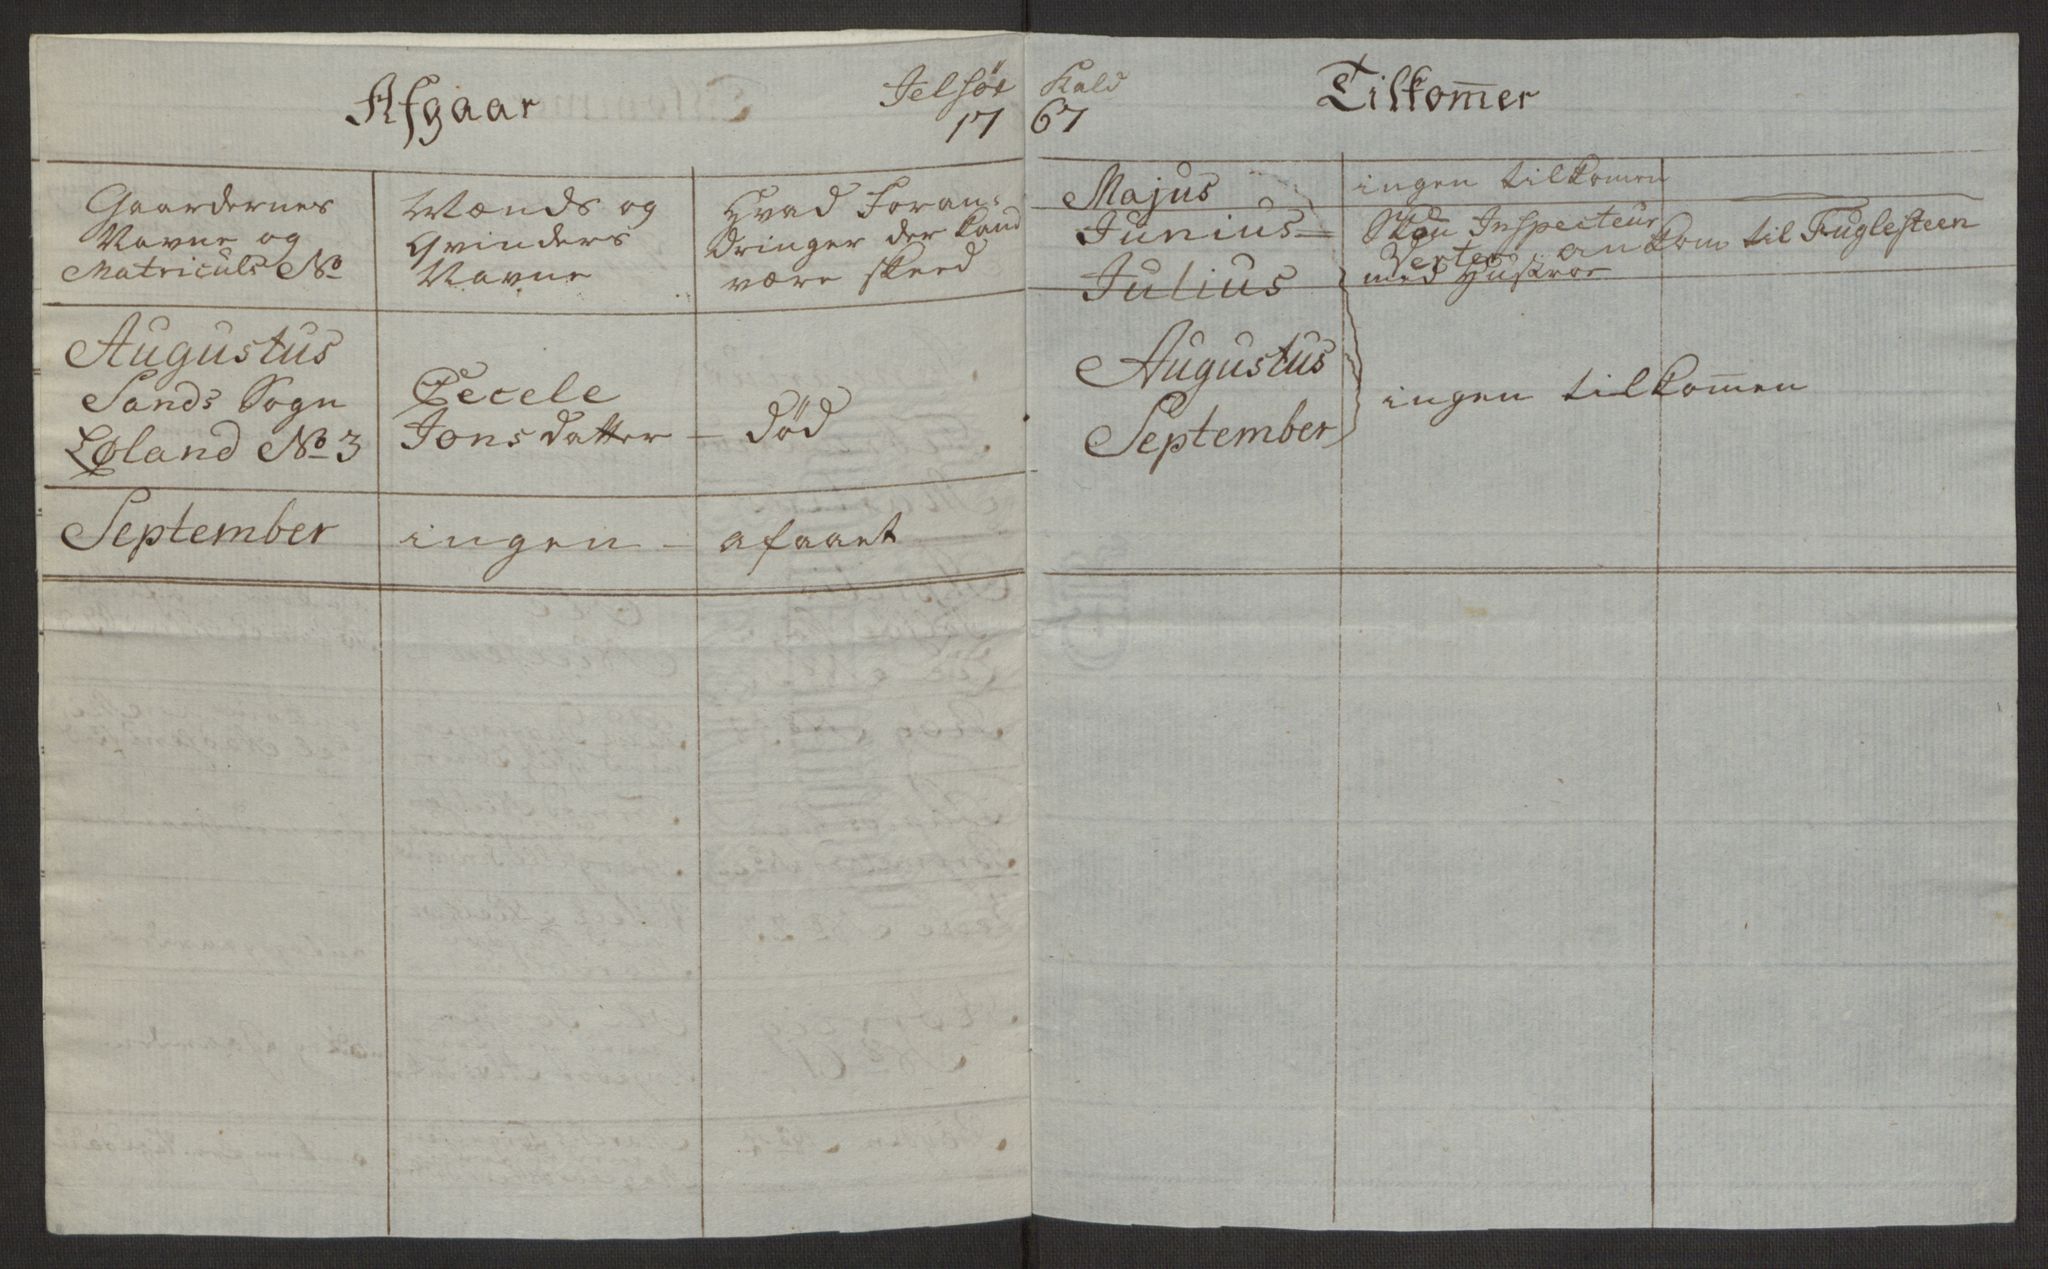 Afgaar
Jelsøe Kald
1767
Tilkom̄er
Gaardernes
Navne og
Matriculs No
Mænds og
Qvinders
Navne
Hvad Foran-
dringer der kand
være skeed
Augustus
Sands Sogn
Løland No 3
Cecele
Jonsdatter
død
September
ingen
afgaaet
Majus
ingen tilkomen
Junius
Skou Inspecteur
ankom til Fuglesteen
med Hustroe
Julius
Augustus
September
ingen tilkom̄en